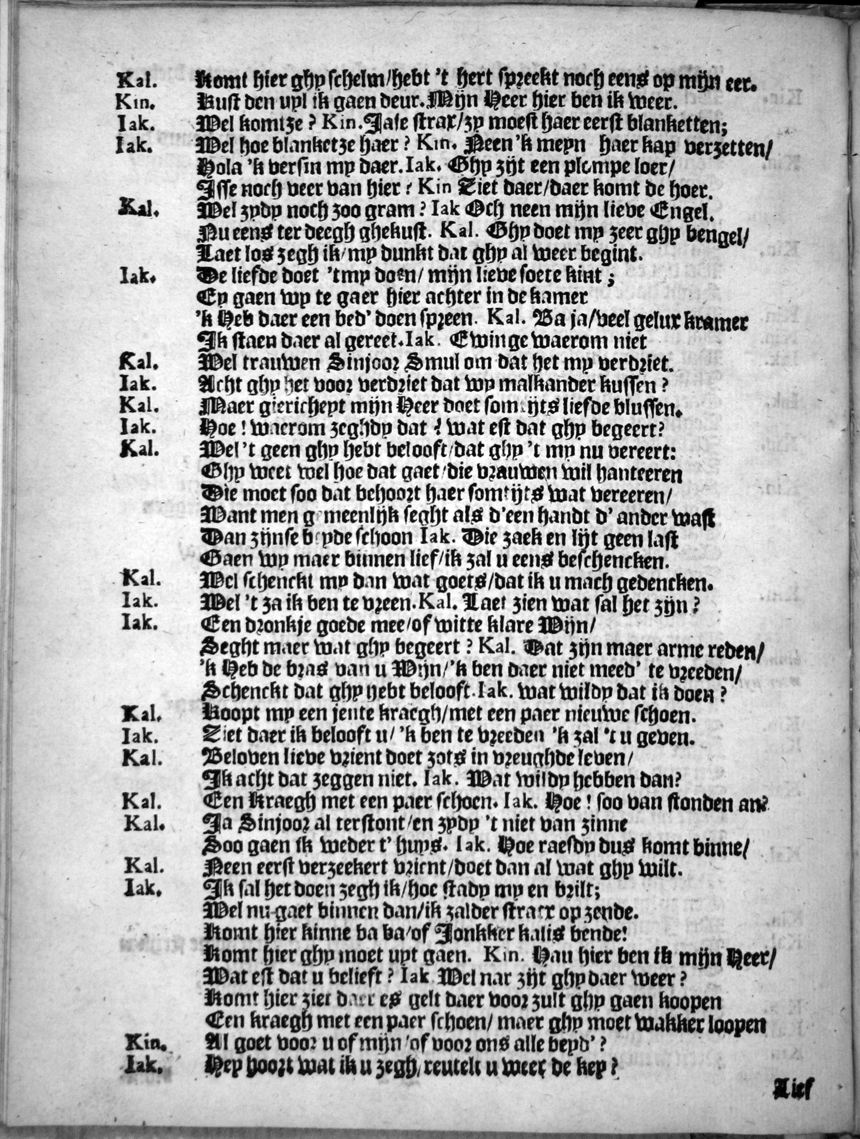 Kal. Komt hier ghy schelm/hebt 't hert spreekt noch eens op mijn eer.
Kin. Kust den uyl ik gaen deur. Mijn Heer hier ben ik weer.
Iak. Wel komtze? Kin. Jase strax/zy moest haer eerst blanketten;
Iak. Wel hoe blanketze haer? Kin. Neen 'k meyn haer kap verzetten/
Hola 'k versin my daer. Iak. Ghy zijt een plompe loer/
Isse noch veer van hier? Kin Ziet daer/daer komt de hoer.
Kal. Wel zydy noch zoo gram? Iak Och neen mijn lieve Engel.
Nu eens ter deegh ghekust. Kal. Ghy doet my zeer ghy bengel/
Laet los zegh ik/my dunkt dat ghy al weer begint.
Iak. De liefde doet 'tmy doen/ mijn lieve soete kint;
Ey gaen wy te gaer hier achter in de kamer
'k Heb daer een bed' doen spreen. Kal. Ba ja/veel gelux kramer
Ik staen daer al gereet. Iak. Ewinge waerom niet
Kal. Wel trauwen Sinjoor Smul om dat het my verdriet.
Iak. Acht ghy het voor verdriet dat wy malkander kussen?
Kal. Maer giericheyt mijn Heer doet somtijts liefde blussen.
Iak. Hoe! waerom zeghdy dat? wat est dat ghy begeert?
Kal. Wel 't geen ghy hebt belooft/dat ghy 't my nu vereert:
Ghy weet wel hoe dat gaet/die vrauwen wil hanteeren
Die moet soo dat behoort haer somtijts wat vereeren/
Want men gemeenlijk seght als d'een handt d' ander wast
Dan zijnse beyde schoon Iak. Die zaek en lijt geen last
Gaen wy maer binnen lief/ik zal u eens beschencken.
Kal. Wel schenckt my dan wat goets/dat ik u mach gedencken.
Iak. Wel 't za ik ben te vreen. Kal. Laet zien wat sal het zijn?
Iak. Een dronkje goede mee/of witte klare Wijn/
Seght maer wat ghy begeert? Kal. Dat zijn maer arme reden/
'k Heb de bras van u Wijn/'k ben daer niet meed' te vreeden/
Schenckt dat ghy hebt belooft. Iak. wat wildy dat ik doen?
Kal. Koopt my een jente kraegh/met een paer nieuwe schoen.
Iak. Ziet daer ik belooft u/ 'k ben te vreeden 'k zal 't u geven.
Kal. Beloven lieve vrient doet zots in vreughde leven/
Ik acht dat zeggen niet. Iak. Wat wildy hebben dan?
Kal. Een kraegh met een paer schoen. Iak. Hoe! soo van stonden an?
Kal. Ja Sinjoor al terstont/en zydy 't niet van zinne
Soo gaen ik weder t' huys. Iak. Hoe raesdy dus komt binne/
Kal. Neen eerst verzeekert vrient/doet dan al wat ghy wilt.
Iak. Ik sal het doen zegh ik/hoe stady my en brilt;
Wel nu gaet binnen dan/ik zalder stracx op zende.
Komt hier kinne ba ba/of Jonkker kalis bende!
Komt hier ghy moet uyt gaen. Kin. Hau hier ben ik mijn Heer/
Wat est dat u belieft? Iak Wel nar zijt ghy daer weer?
Komt hier ziet daer es gelt daer voor zult ghy gaen koopen
Een kraegh met een paer schoen/ maer ghy moet wakker loopen
Kin. Al goet voor u of mijn/of voor ons alle beyd'?
Iak. Hey hoort wat ik u zegh, reutelt u weer de key?
Lief